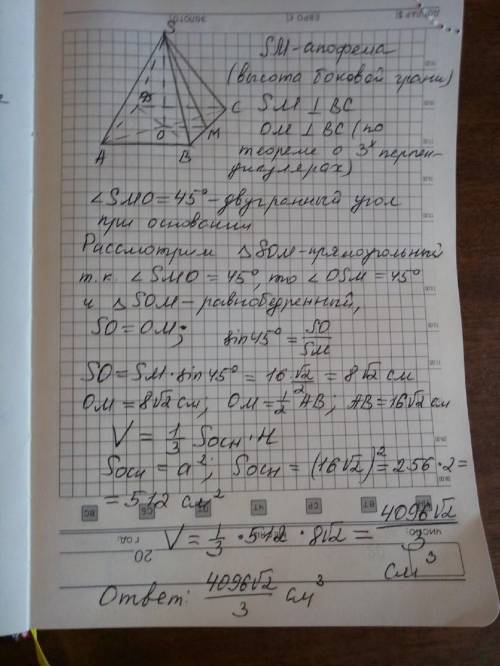 S
A
B
C
D
O
M
SM-апофема
(высота боковой грани)
SM ⊥ BC
OM ⊥ BC (по
теореме о 3х перпен-
дикулярах)
∠SMO = 45° - двугранный угол
при основании
Рассмотрим △SOM-прямоугольный
т.к. ∠SMO = 45°, то ∠OSM = 45°
и △SOM - равнобедренный,
SO = OM; sin45° = SO/SM
SO = SM · sin45° = 16 √2/2 = 8√2 см
OM = 8√2 см; OM = 1/2 AB; AB = 16√2 см
V = 1/3 Sосн · H
Sосн = a²; Sосн = (16√2)² = 256 · 2 =
= 512 см²
V = 1/3 · 512 · 8√2 = 4096√2/3 см³
Ответ: 4096√2/3 см³
ВС
СБ
ПТ
ЧТ
СР
ВТ
20
ГОД
ЧИСЛО:
ЗОЛОТО
ЕВРО €